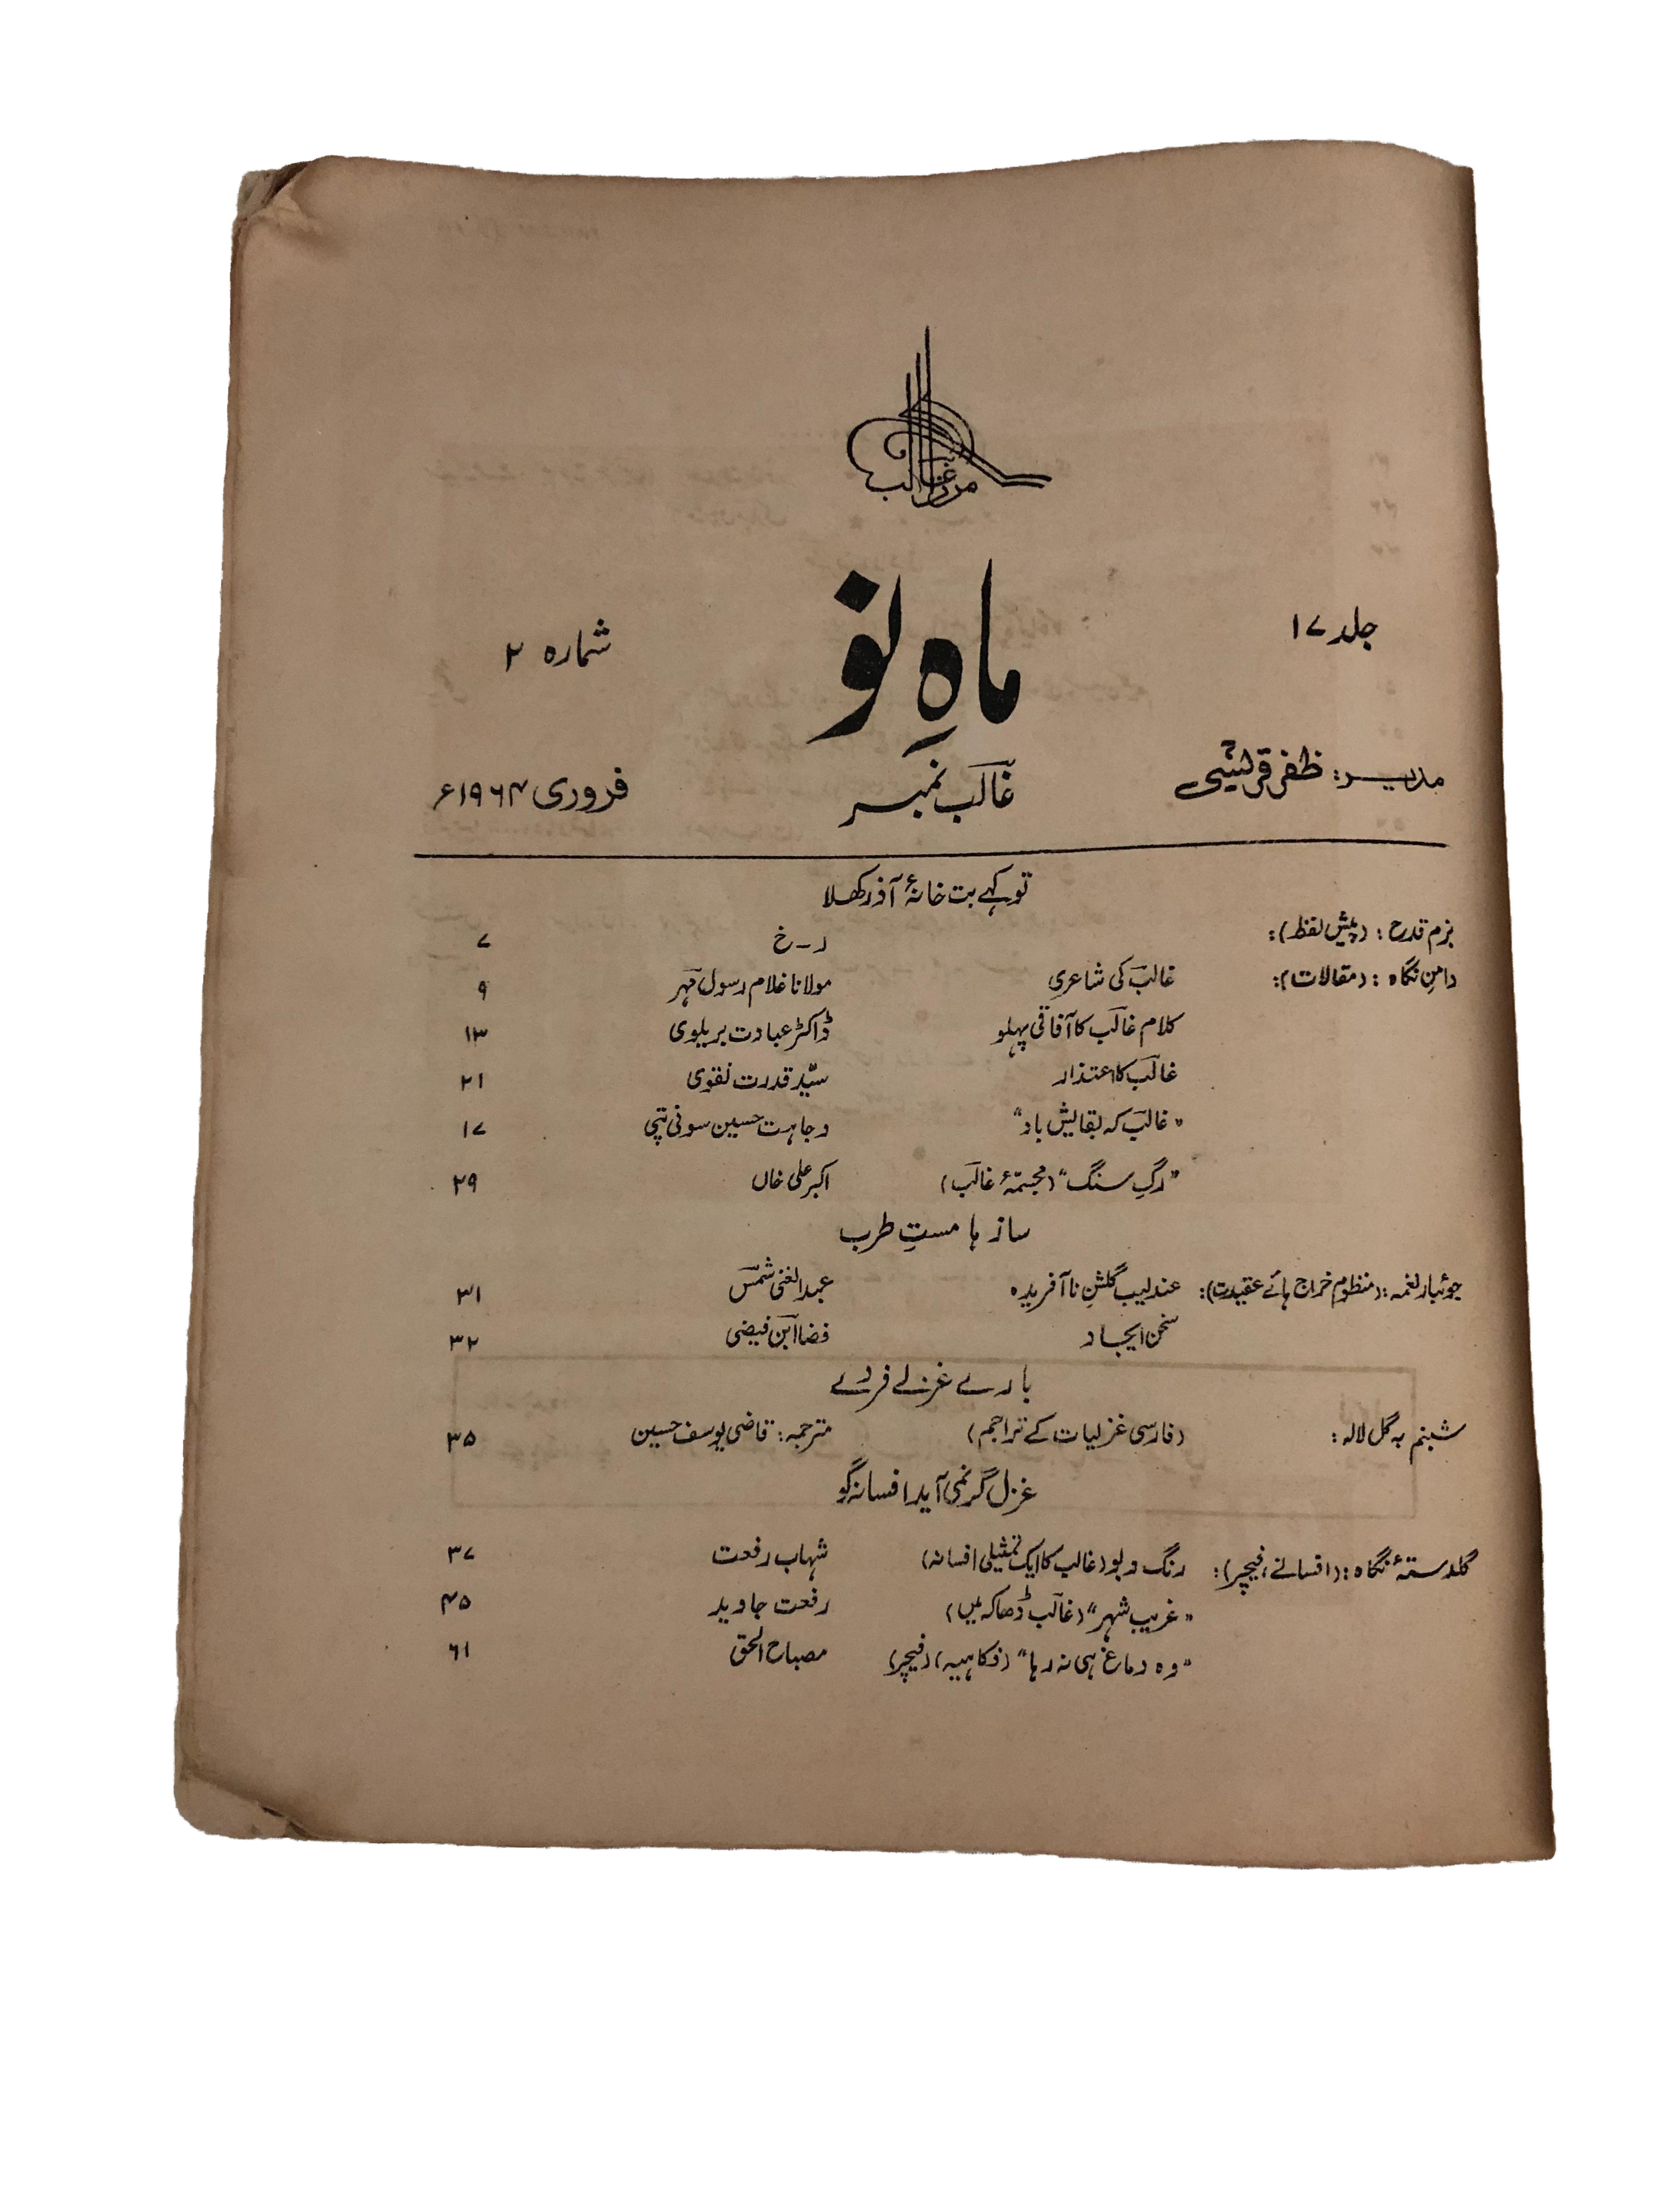 مرزا غالب
جلد ۱۷
ماہِ نو
شمارہ ۲
مدیر: ظفر قریشی
غالب نمبر
فروری ۱۹۶۴ء
تو کہے بت خانۂ آذر کھلا
بزم قدح: (پیش لفظ): ر-خ ۷
دامنِ نگاہ: (مقالات): غالب کی شاعری مولانا غلام رسول مہر ۹
کلام غالب کا آفاقی پہلو ڈاکٹر عبادت بریلوی ۱۳
غالب کا اعتذار سیّد قدرت نقوی ۲۱
"غالب کہ بقایش باد" وجاہت حسین سونی پتی ۱۷
"رگِ سنگ" (مجسّمۂ غالب) اکبر علی خاں ۲۹
ساز ہا مستِ طرب
جوئبار نغمہ: (منظوم خراج ہائے عقیدت): عندلیب گلشنِ ناآفریدہ عبدالغنی شمس ۳۱
سخن ایجاد فضا ابن فیضی ۳۲
بارے غزلے فردے
شبنم بہ گل لالہ: (فارسی غزلیات کے تراجم) مترجمہ: قاضی یوسف حسین ۳۵
غزل گر نمی آید افسانہ گو
گلدستۂ نگاہ: (افسانے، فیچر): رنگ و بو (غالب کا ایک تمثیلی افسانہ) شہاب رفعت ۳۷
"غریب شہر" (غالب ڈھاکہ میں) رفعت جاوید ۴۵
"وہ دماغ ہی نہ رہا" (فکاہیہ) (فیچر) مصباح الحق ۶۱